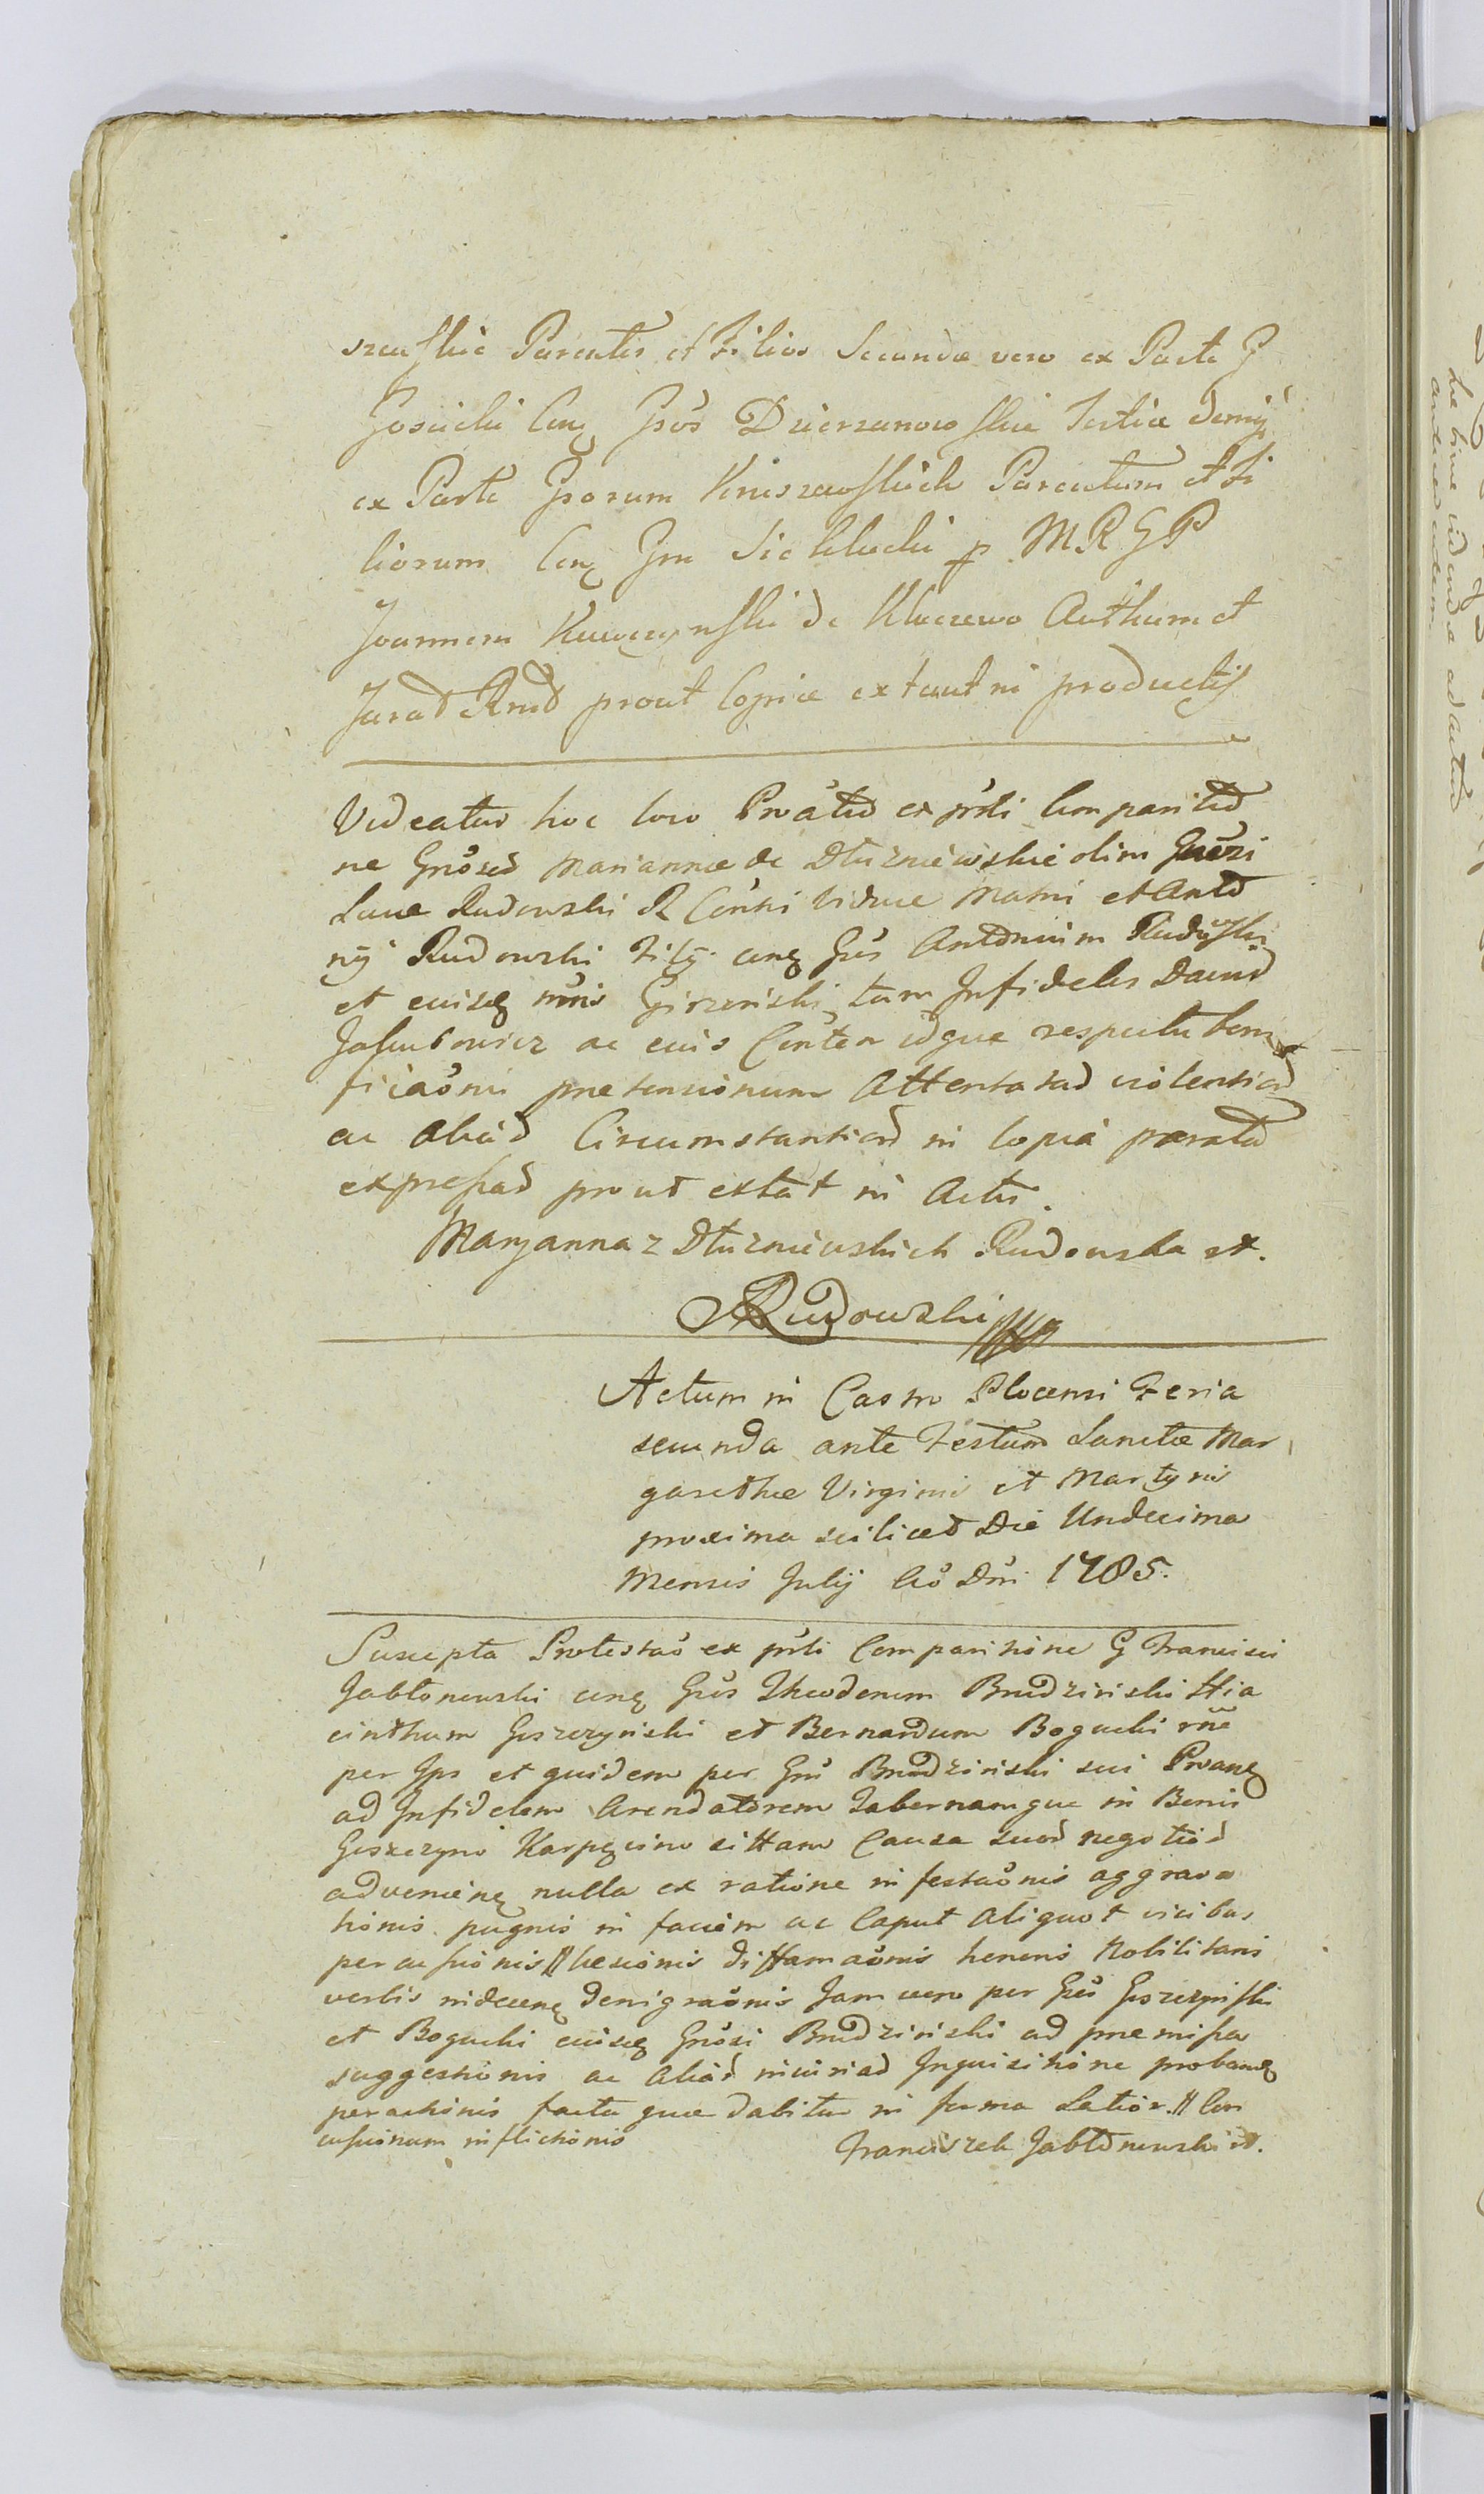 szewskie Parentes et Filios Secundæ vero ex Parte G
Gosicki Cong Gsös Dzierzanowskie Tertiæ demỹ
ex Parte Gsorum Kniszewskich Parentum et Fi
liorum Cong Gm Sieklucki p MRGP
Joannem Kuwczynski de Kluczewo Authum et
Jurad Rnd prout Copiæ extant in productis
Videatur hoc loco Proatio ex prsti Comparitio
ne Gnösed Mariannæ de Dłuzniewskie olim Gnösi
Lucæ Rudowski R Cönsi Viduæ Matris et Anto
nij Rudowski Filÿ cong Gös Antonium Rudowski
et eiusq Girzyński tum Infideles David
Jakubowicz ac eius Conten idque respectu bon
ficiaönis prætensionum Attentatad violentiad
ac Aliad Circumstantiad in Copia porrecta
expressad prout extat in Actis.
Maryanna z Dłuzniewskich Rudowska et.
ARudowski
Actum in Castro Plocensi Feria
secunda ante Festum Sanctæ Mar
garethæ Virginis et Martyris
proxima scilicet Die Undecima
Mensis Julij Aö Dni 1785.
Suscepta Protestaö ex prsti Comparitione G Francisci
Jabłonowski cong Gös Theodorum Brudziński Hia
cinthum Goszczyński et Bernardum Bogucki rñe
per Ips et quidem per Gm Brudziński sui Proang
ad Infidelem Arendatorem Tabernamque in Bonis
Goszczyno Karpęcino sittam Causa suod negotiod
adveniēng nulla ex ratione infestaönis aggrava
tionis pugnis in faciem ac Caput Aliquot vicibus
percussionis // læsionis diffamaönis honoris Nobilitaris
verbis indeceng denigraönis Jam vero per Gös Goszczynski
et Bogucki eiusq Gnösi Brudziński ad præmissa
suggestionis ac Aliad iniuriad Inquisitione probang
peractionis facta quæ dabitur in forma Latior. // Con
cussionum inflictionis
Franciszek Jabłonowski et.